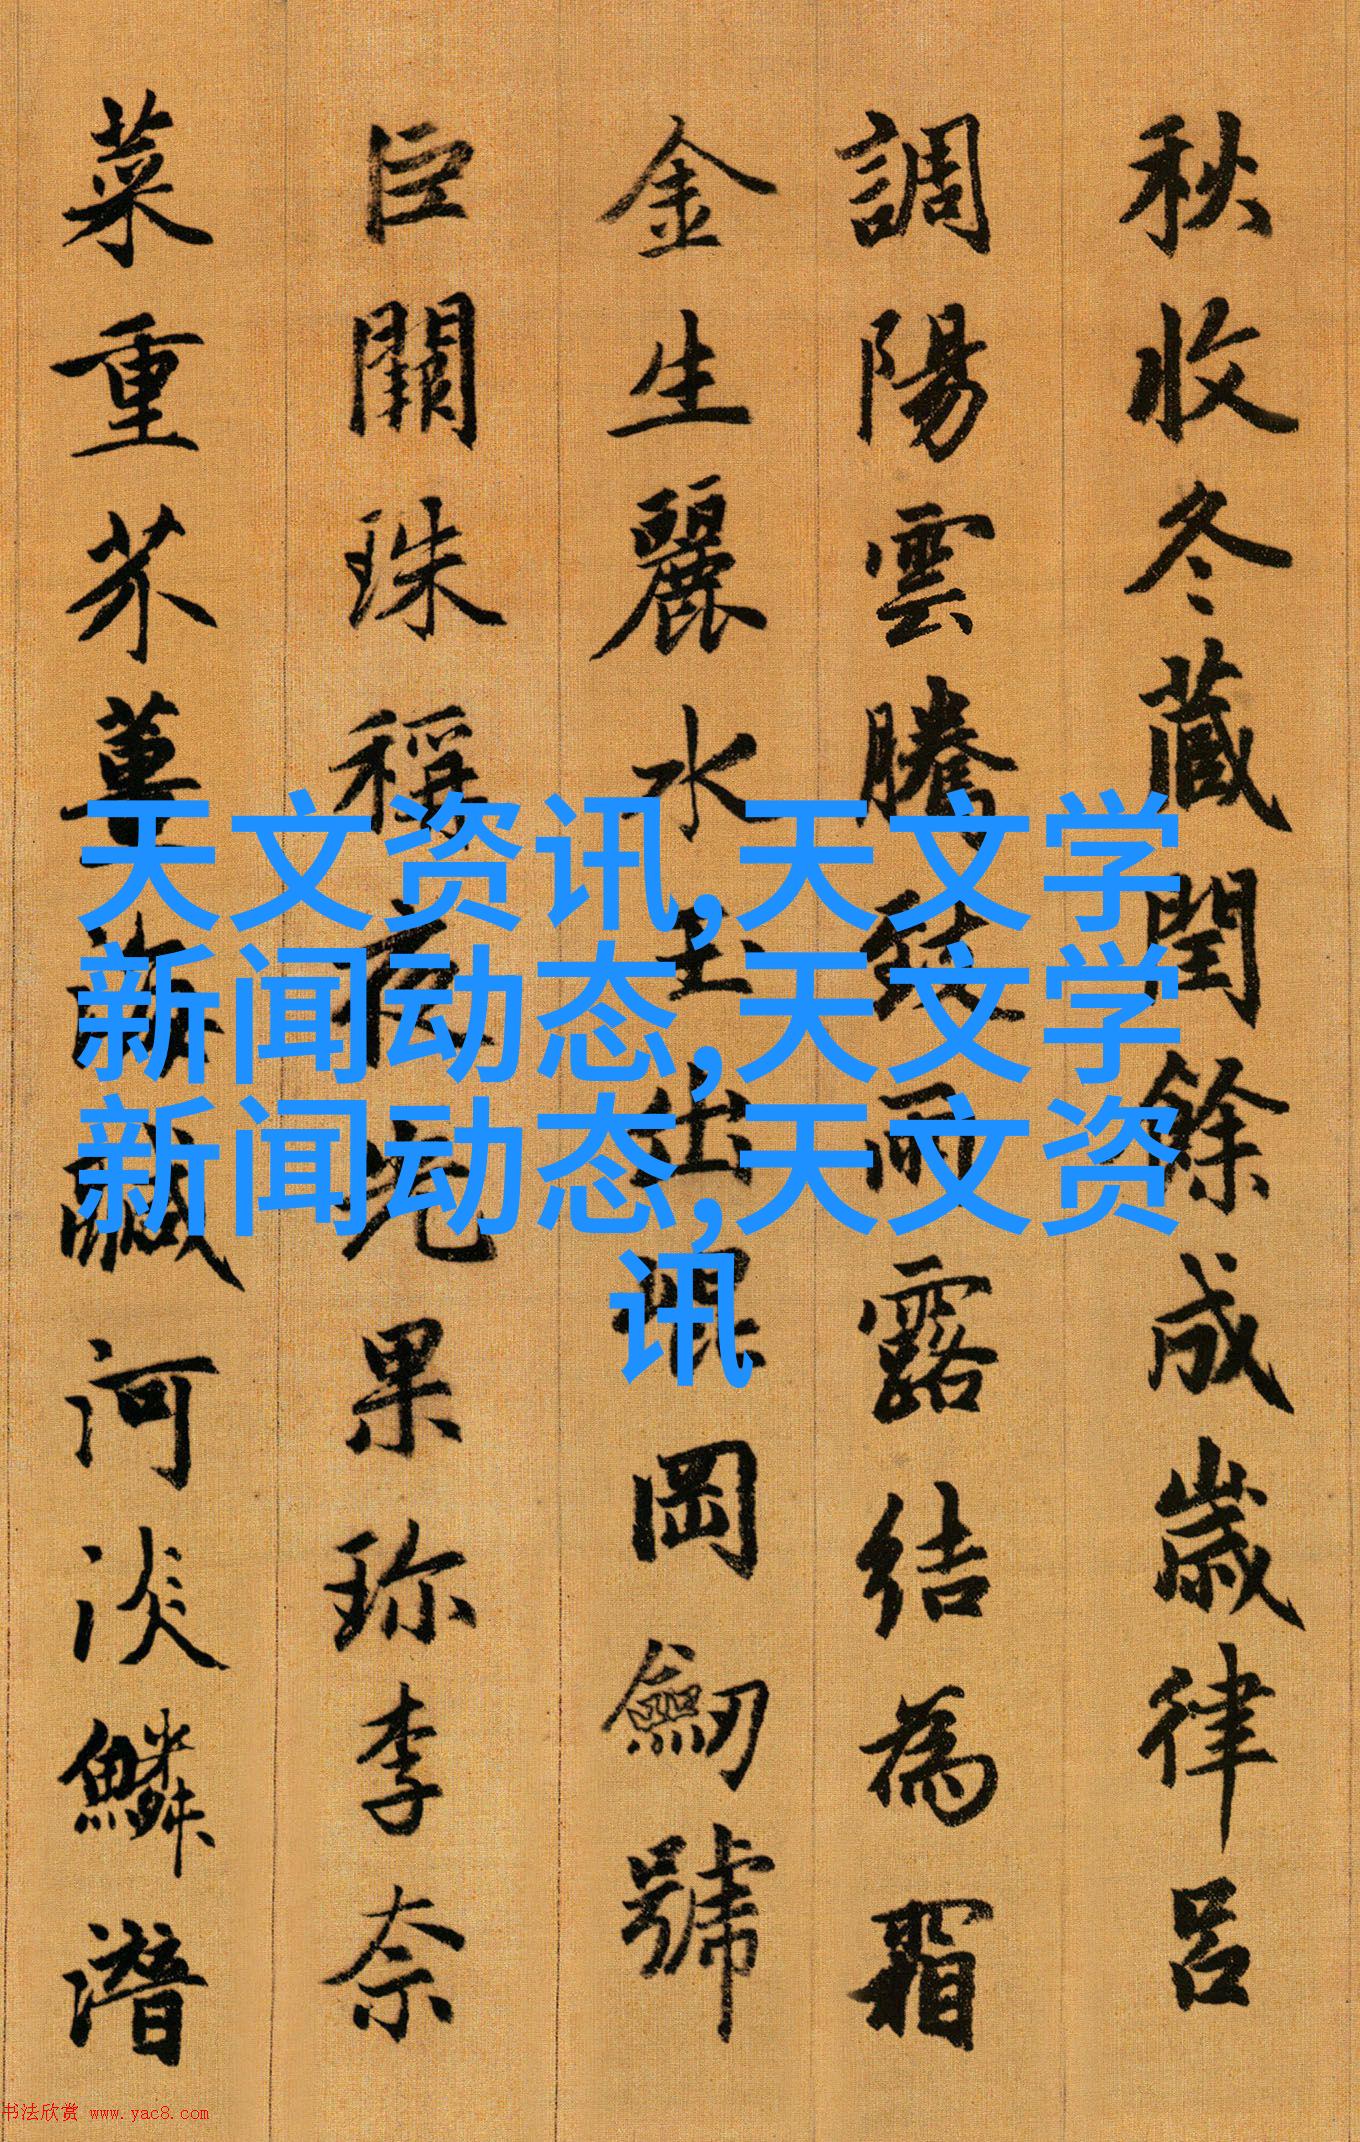 秋收冬藏閏餘成歲律呂
調陽雲騰致雨露結為霜
金生麗水玉出崐岡劒號
巨闕珠稱夜光果珎李柰
菜重芥薑海鹹河淡鱗潛
天文资讯,天文学
新闻动态,天文学
新闻动态,天文资
讯
书法欣赏 www.yac8.com